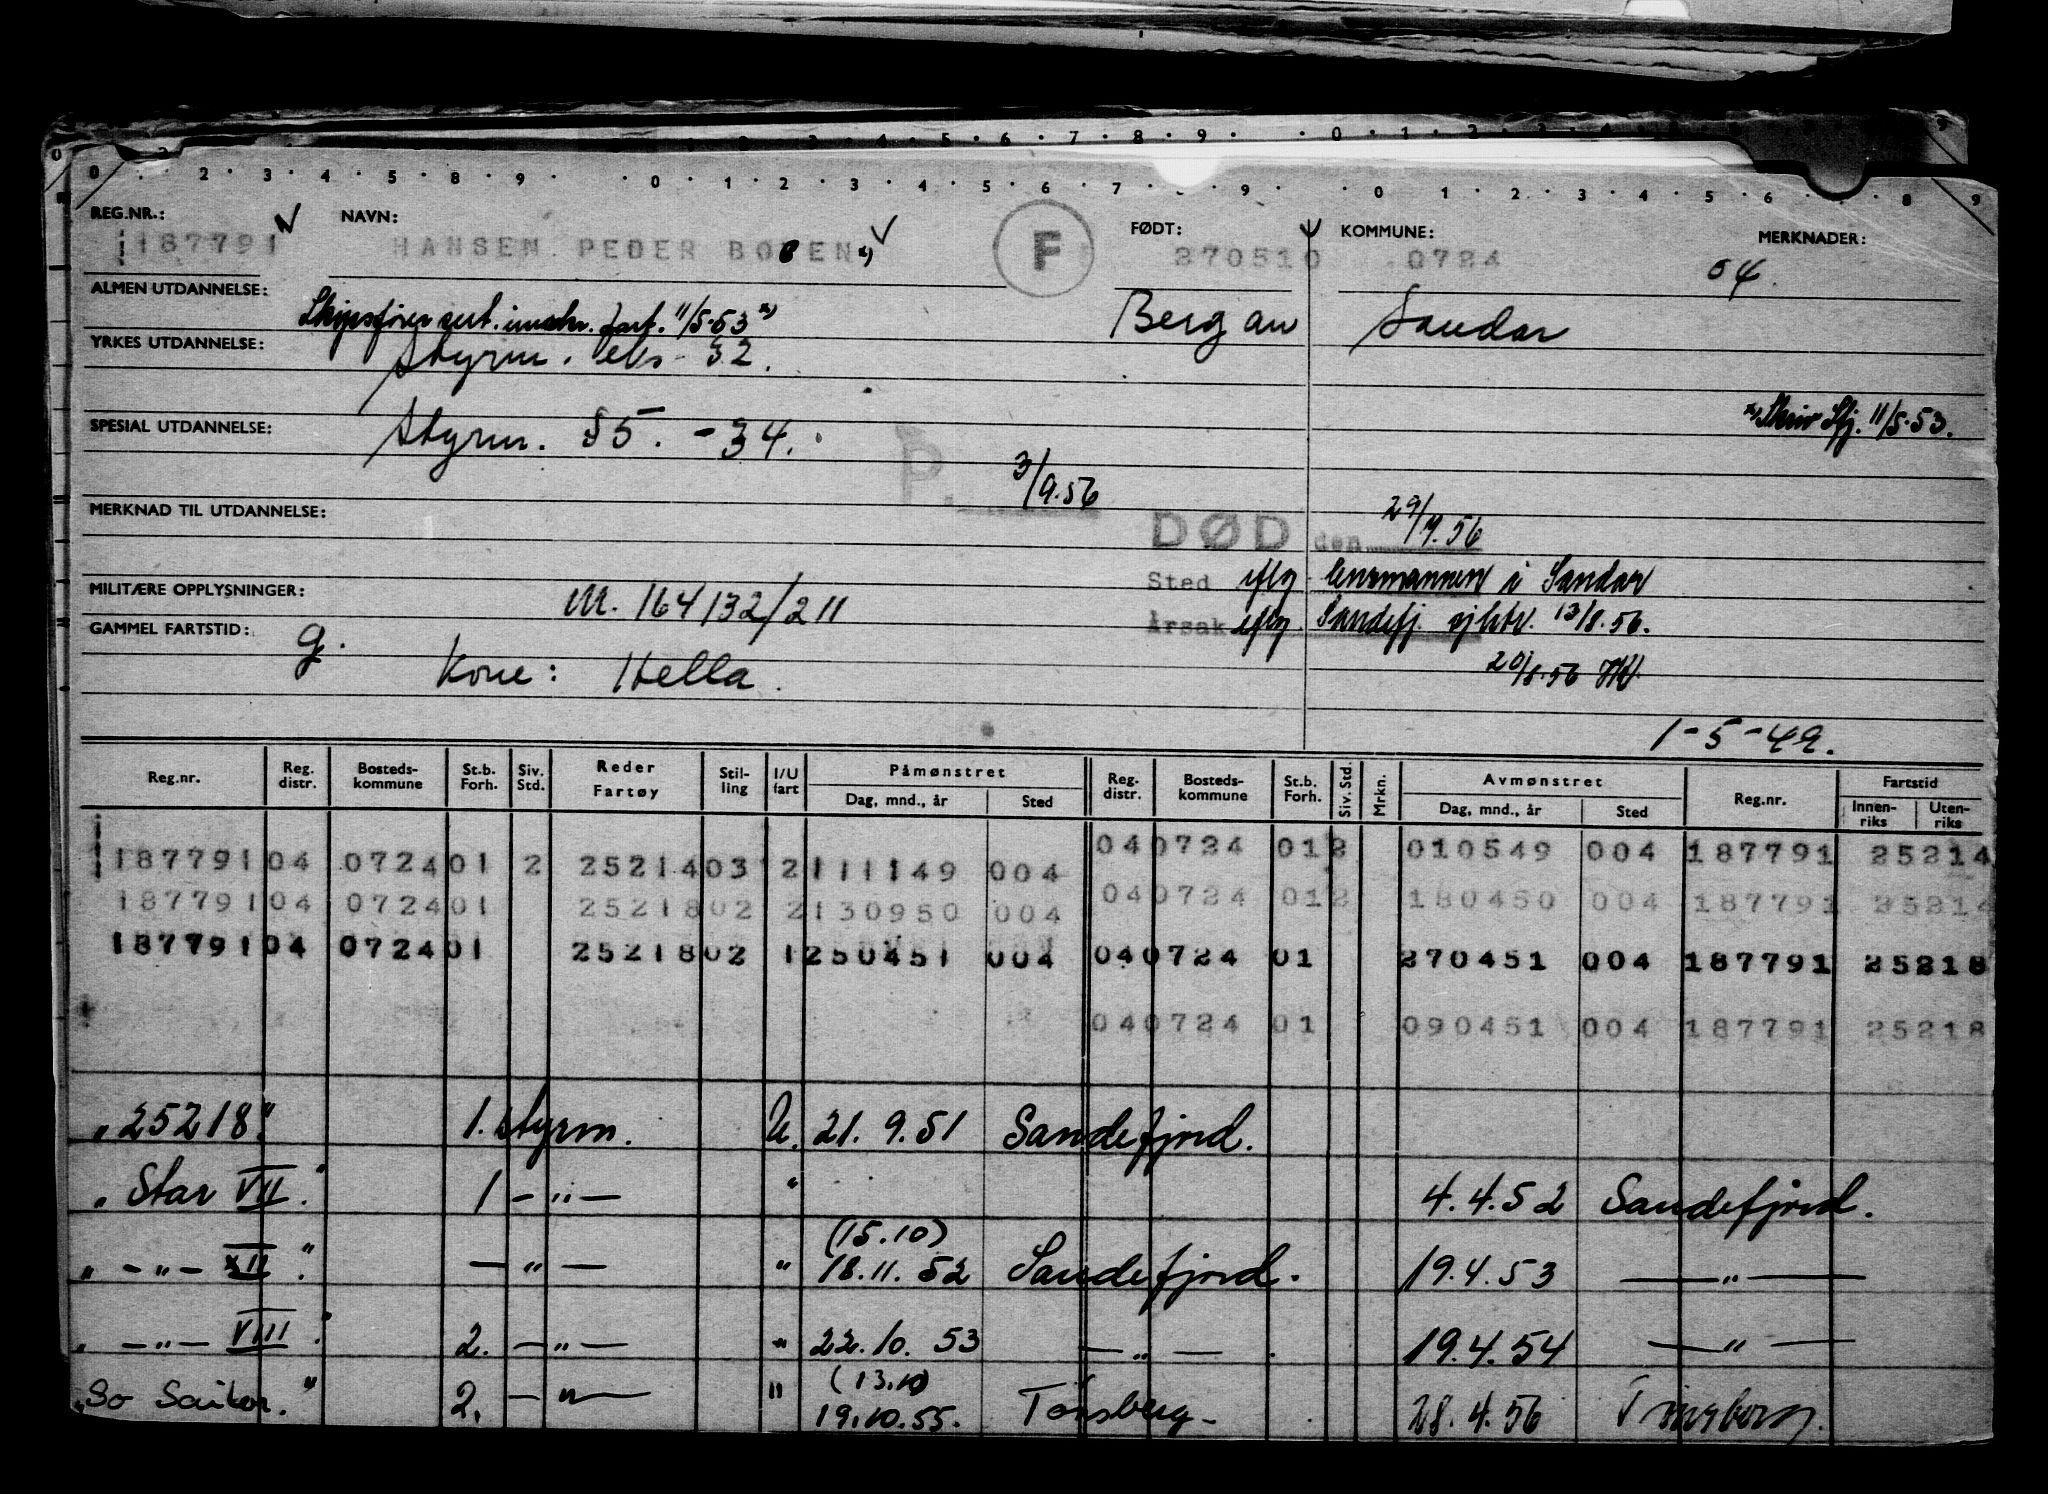 REG.NR.: NAVN: FØDT: KOMMUNE: MERKNADER:
187791 HANSEN PEDER BOEEN x) F 270510 0724 04
ALMEN UTDANNELSE: Bergan Sandar
Skipsfører sert. innskr. fart. 11/5-53 x)
YRKES UTDANNELSE: Styrm. eks - 32.
x) Skriv Sfj. 11/5-53.
SPESIAL UTDANNELSE: Styrm. §5. - 34.
P. 3/9.56
MERKNAD TIL UTDANNELSE:
DØD den 29/7.56
MILITÆRE OPPLYSNINGER: M. 164132/211
Sted iflg. lensmannen i Sandar
GAMMEL FARTSTID: g.
Årsak iflg. Sandefj. sjktr. 13/8.56.
Kone: Hella.
20/8.56 HK
1-5-49.
Reg.nr. Reg. distr. Bosteds-kommune St.b. Forh. Siv. Std. Reder Fartøy Stil-ling I/U fart Påmønstret Dag, mnd., år Sted Reg. distr. Bosteds-kommune St.b. Forh. Siv. Std. Mrkn. Avmønstret Dag, mnd., år Sted Reg.nr. Fartstid Innen-riks Uten-riks
187791 04 0724 01 2 25214 03 2 111149 004 04 0724 01 2 010549 004 187791 25214
187791 04 0724 01 25218 02 2 130950 004 04 0724 01 2 180450 004 187791 25214
187791 04 0724 01 25218 02 1 250451 004 04 0724 01 270451 004 187791 25218
04 0724 01 090451 004 187791 25218
"25218" 1. styrm. U. 21.9.51 Sandefjord.
"Star VII." 1 - " - " 4.4.52 Sandefjord.
(15.10)
" - " - XII." - " - " 18.11.52 Sandefjord. 19.4.53 - " -
" - " - VIII." 2. - " - " 22.10.53 - " - . 19.4.54 - " -
(13.10)
"So Sailor." 2. - " - " 19.10.55. Tønsberg - 28.4.56